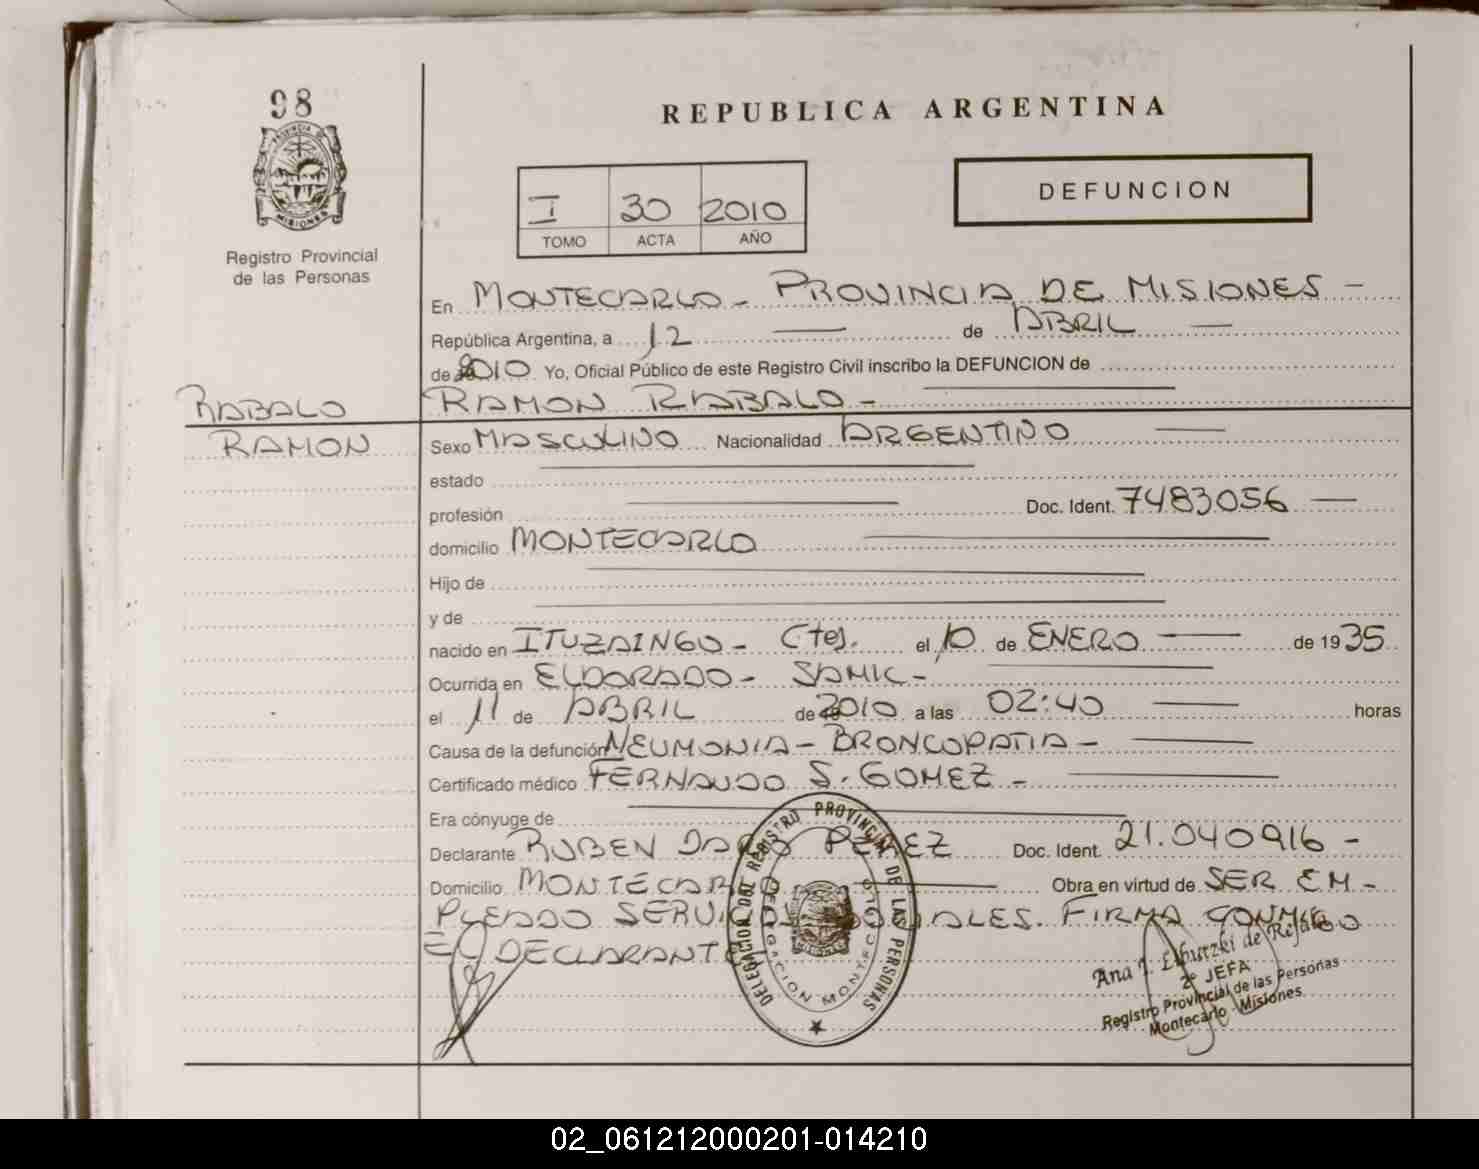 98
PROVINCIA DE
MISIONES
Registro Provincial
de las Personas
REPUBLICA ARGENTINA
I 30 2010
TOMO ACTA AÑO
DEFUNCION
En MONTECARLO - PROVINCIA DE MISIONES -
República Argentina, a 12 de ABRIL
de 2010 Yo, Oficial Público de este Registro Civil inscribo la DEFUNCION de
RAMON RABALO -
RABALO
RAMON
Sexo MASCULINO Nacionalidad ARGENTINO
estado
profesión Doc. Ident. 7483056
domicilio MONTECARLO
Hijo de
y de
nacido en ITUZAINGO - Ctes. el 10 de ENERO de 1935
Ocurrida en ELDORADO - SAMIC -
el 11 de ABRIL de 2010 a las 02:40 horas
Causa de la defunción NEUMONIA - BRONCOPATIA -
Certificado médico FERNANDO S. GOMEZ -
Era cónyuge de
Declarante RUBEN DARIO PEREZ Doc. Ident. 21.040916 -
Domicilio MONTECARLO Obra en virtud de SER EM-
PLEADO SERVICIOS SOCIALES. FIRMA CONMIGO
EL DECLARANTE
DELEGACION DEL REGISTRO PROVINCIAL DE LAS PERSONAS
DELEGACION MONTECARLO
Ana
2º JEFA
Registro Provincial de las Personas
Montecarlo - Misiones
02_061212000201-014210